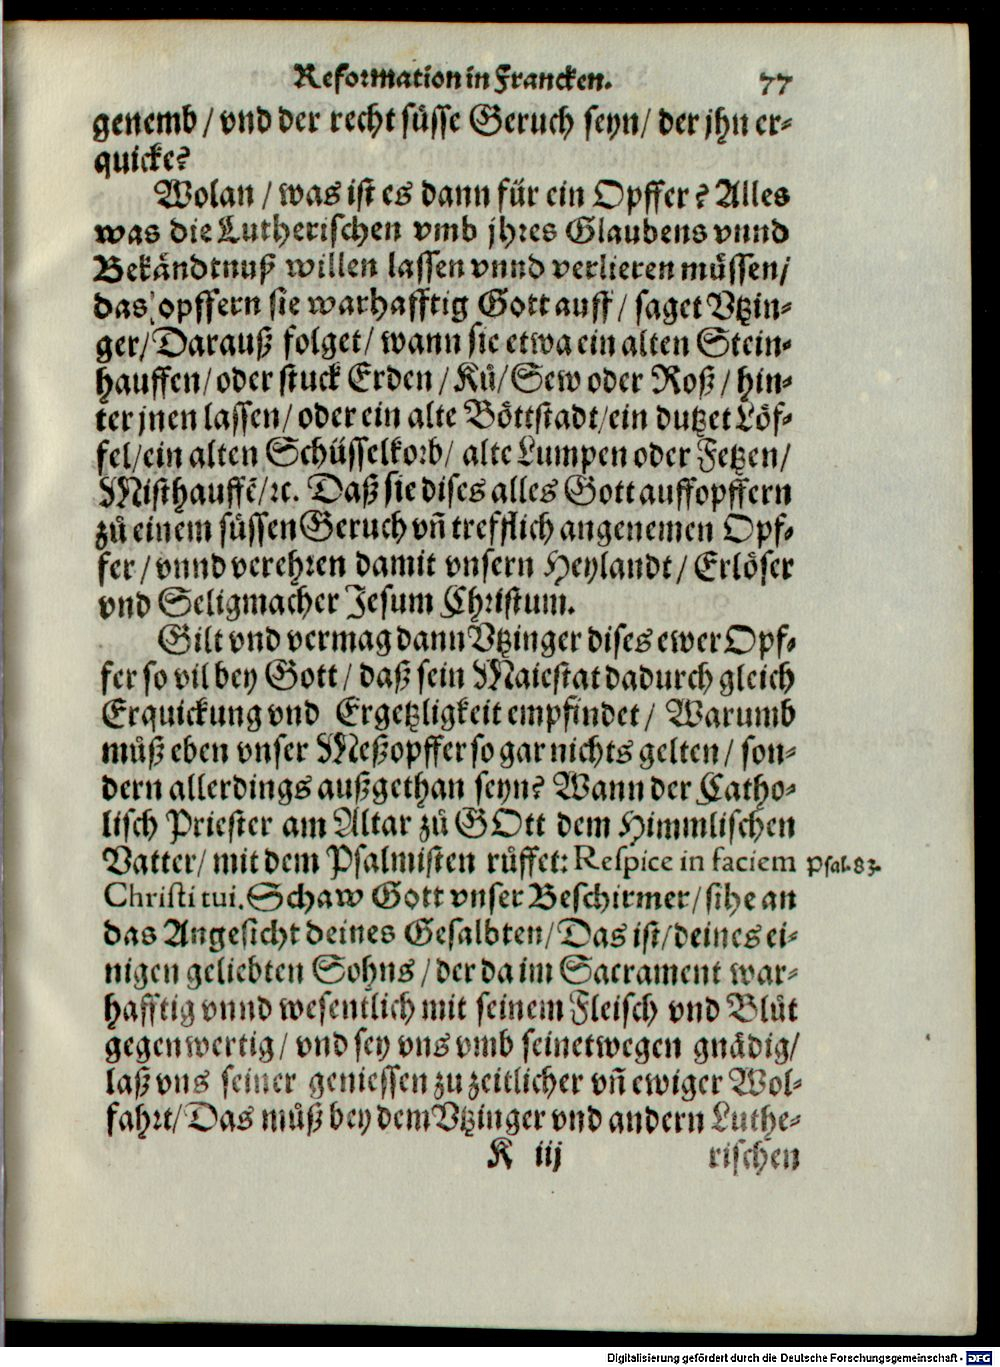 Reformation in Francken. 77
genemb / vnd der recht süsse Geruch seyn / der jhn er-
quicke?
Wolan / was ist es dann für ein Opffer? Alles
was die Lutherischen vmb jhres Glaubens vnnd
Bekändtnuß willen lassen vnnd verlieren müssen /
das opffern sie warhafftig Gott auff / saget Vtzin-
ger / Darauß folget / wann sie etwa ein alten Stein-
hauffen / oder stuck Erden / Ků / Sew oder Roß / hin-
ter jnen lassen / oder ein alte Böttstadt / ein dutzet Löf-
fel / ein alten Schüsselkorb / alte Lumpen oder Fetzen /
Misthauffẽ / ꝛc. Daß sie dises alles Gott auffopffern
zů einem süssen Geruch vñ trefflich angenemen Opf-
fer / vnnd verehren damit vnsern Heylandt / Erlöser
vnd Seligmacher Jesum Christum.
Gilt vnd vermag dann Vtzinger dises ewer Opf-
fer so vil bey Gott / daß sein Maiestat dadurch gleich
Erquickung vnd Ergetzligkeit empfindet / Warumb
můß eben vnser Meßopffer so gar nichts gelten / son-
dern allerdings außgethan seyn? Wann der Catho-
lisch Priester am Altar zů GOtt dem Himmlischen
Vatter / mit dem Psalmisten růffet: Respice in faciem Psal. 83.
Christi tui. Schaw Gott vnser Beschirmer / sihe an
das Angesicht deines Gesalbten / Das ist / deines ei-
nigen geliebten Sohns / der da im Sacrament war-
hafftig vnnd wesentlich mit seinem Fleisch vnd Blůt
gegenwertig / vnd sey vns vmb seinetwegen gnädig /
laß vns seiner geniessen zu zeitlicher vñ ewiger Wol-
fahrt / Das můß bey dem Vtzinger vnd andern Luthe-
K iij rischen
Digitalisierung gefördert durch die Deutsche Forschungsgemeinschaft - DFG